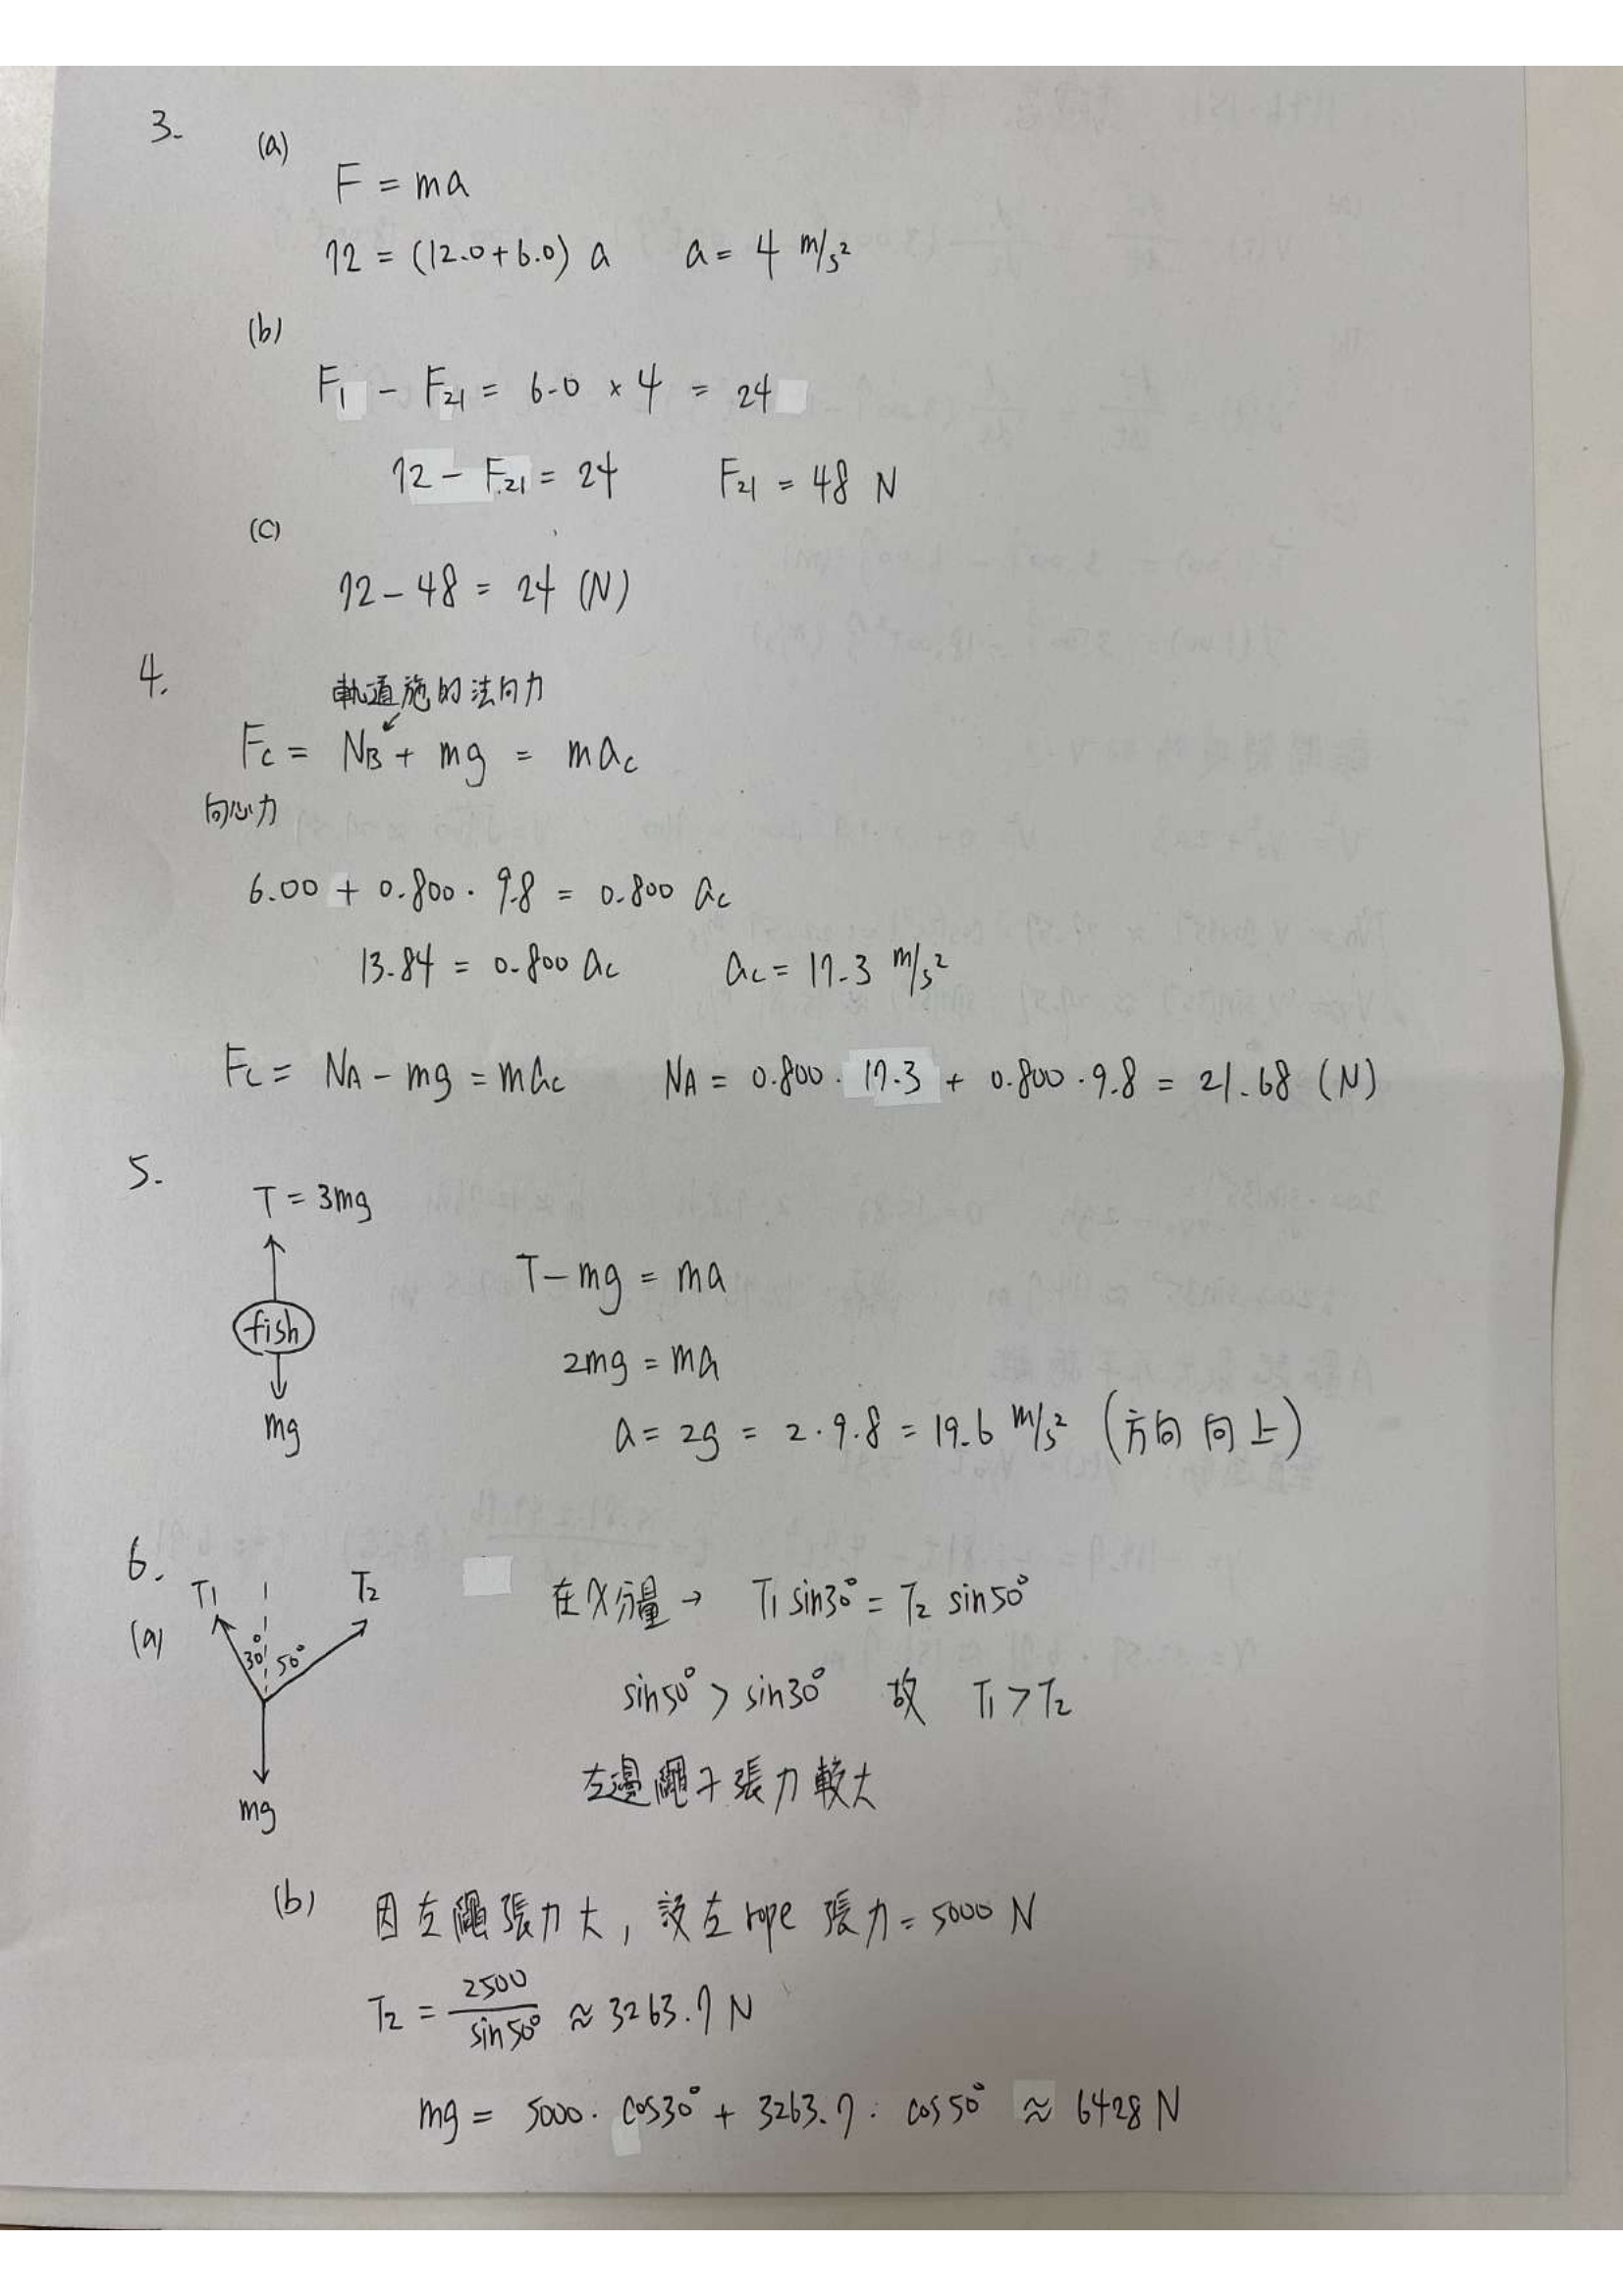 3.
(a)
F = ma
72 = (12.0+6.0) a a = 4 m/s²
(b)
F₁ - F₂₁ = 6.0 × 4 = 24
72 - F₂₁ = 24 F₂₁ = 48 N
(c)
72 - 48 = 24 (N)
4.
軌道施的法向力
Fc = NB + mg = mac
向心力
6.00 + 0.800 · 9.8 = 0.800 ac
13.84 = 0.800 ac ac = 17.3 m/s²
Fc = NA - mg = mac NA = 0.800 · 17.3 + 0.800 · 9.8 = 21.68 (N)
5.
T = 3mg
fish
mg
T - mg = ma
2mg = ma
a = 2g = 2 · 9.8 = 19.6 m/s² (方向向上)
6.
(a)
T₁ T₂
30° 50°
mg
在X分量 → T₁ sin30° = T₂ sin50°
sin50° > sin30° 故 T₁ > T₂
左邊繩子張力較大
(b) 因左繩張力大, 設左rope 張力 = 5000 N
T₂ = 2500 / sin50° ≈ 3263.7 N
mg = 5000 · cos30° + 3263.7 · cos50° ≈ 6428 N